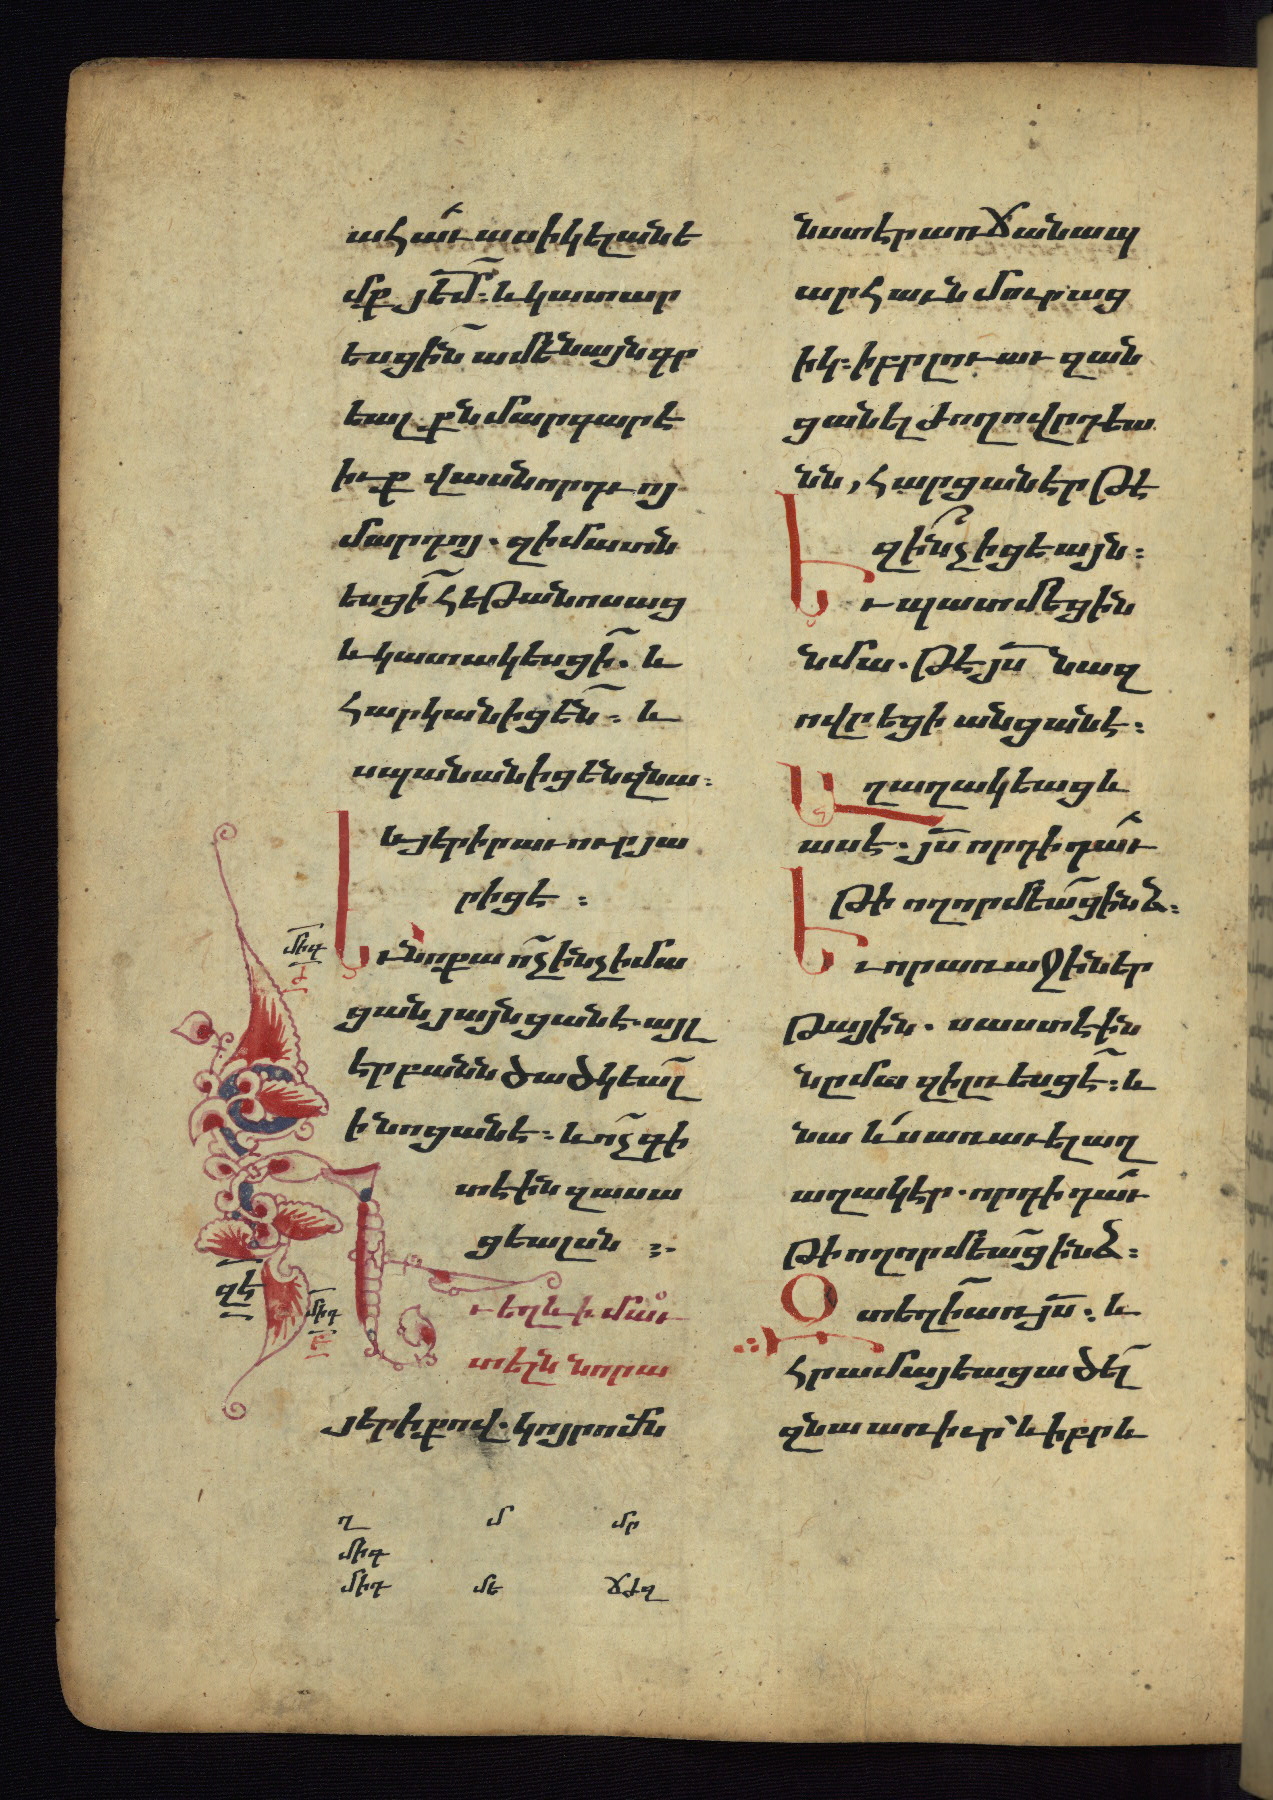 ահաւասիկ ելանե
մք յե՞մ։ և կատար
եսցին ամենայն գր
եալքն մարգարէ
իւք վասն որդւոյ
մարդոյ. զի մատն
եսցի հեթանոսաց
և կատակեսցի. և
հարկանիցեն։ և
սպանանիցեն զնա։
և յերիր աւուր յա
րիցե։
Եւ նոքա ոչ ինչ իմա
ցան յայնցանե. այլ
էր բանն ծածկեալ
ի նոցանե։ և ոչ գի
տեին զասա
ցեալսն։
Եւ եղև ի մաւ
տել նորա
յերիքով. կոյր ոմն
նստեր առ ճանապ
արհաւն մուրաց
իկ։ իբր լուաւ զան
ցանել ժողովրդեա
նն, հարցաներ թե
զինչ իցե այն։
Եւ պատմեցին
նմա. թե յս նազ
ովրեցի անցանե։
Աղաղակեաց և
ասե. յս որդի դաւ
թի ողորմեա ինձ։
Եւ որ առաջիներ
թային. սաստեին
նրմա զի լռեսցե։ և
նա ևս առաւել աղ
աղակեր. որդի դաւ
թի ողորմեա ինձ։
Օտեղի առ յս։ և
հրամայեաց ածել
զնա առ իւր՝ և իբրև
միգ
զէ
միդ
ղ մ մբ
միգ
միդ մե ճժղ